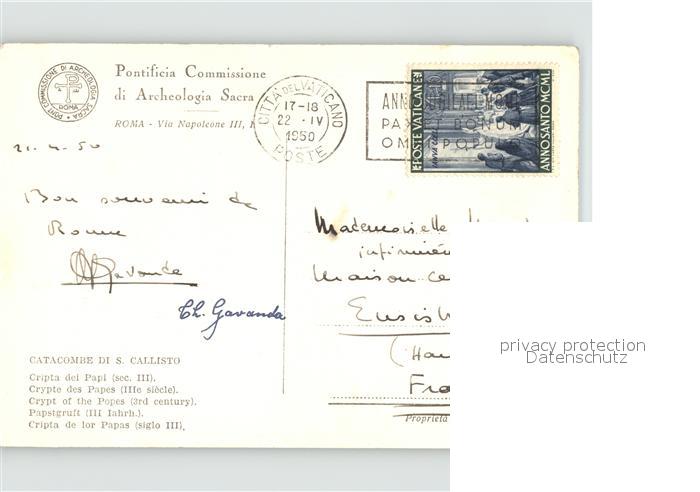 PONT. COMMISSIONE DI ARCHEOLOGIA SACRA
ROMA
Pontificia Commissione
di Archeologia Sacra
ROMA - Via Napoleone III,
CITTÀ DEL VATICANO
17-18
22 . IV
1950
POSTE
ANNO
PAX
POPU
POSTE VATICANE
ANNO SANTO MCML
21.4.50
Bon souvenir de
Rome
Th. Gavanda
Mademoiselle
infirmiè
Maison ce
Ensish
(Hau
Fra
privacy protection
Datenschutz
CATACOMBE DI S. CALLISTO
Cripta dei Papi (sec. III).
Crypte des Papes (IIIe siècle).
Crypt of the Popes (3rd century).
Papstgruft (III Iahrh.).
Cripta de lor Papas (siglo III).
Proprietà